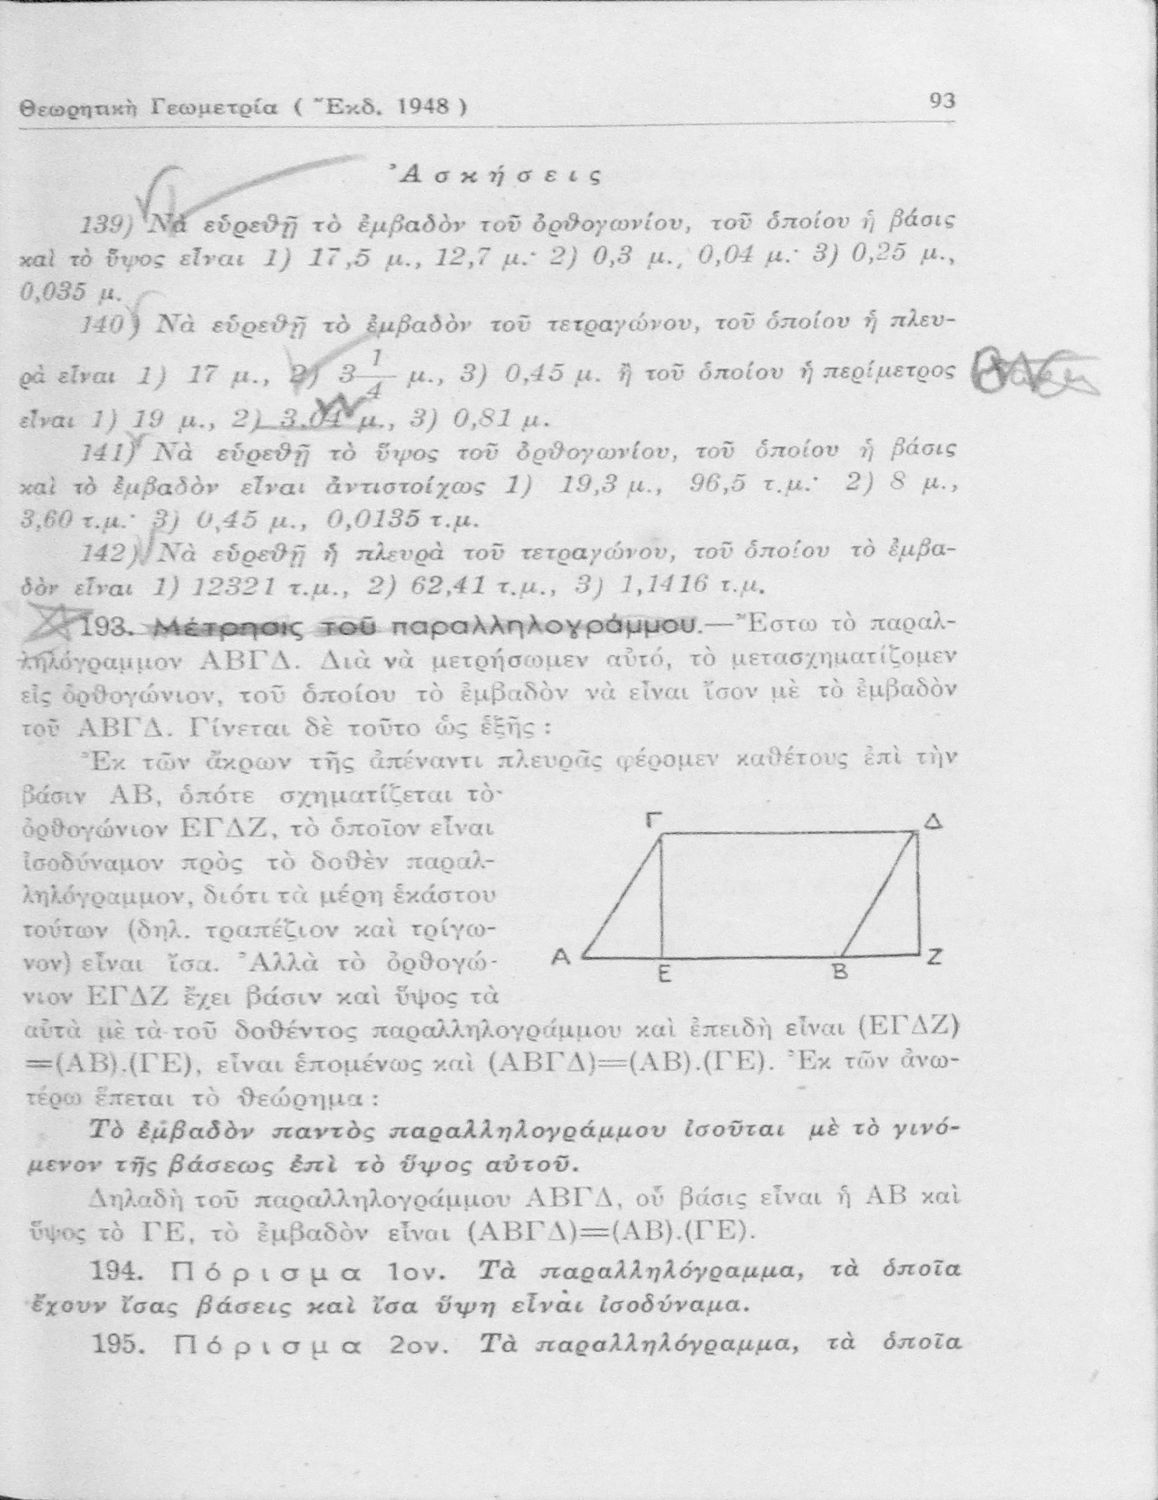 Θεωρητικὴ Γεωμετρία ( Ἔκδ. 1948 ) 93
Ἀσκήσεις
139) Νὰ εὑρεθῇ τὸ ἐμβαδὸν τοῦ ὀρθογωνίου, τοῦ ὁποίου ἡ βάσις
καὶ τὸ ὕψος εἶναι 1) 17,5 μ., 12,7 μ.· 2) 0,3 μ., 0,04 μ.· 3) 0,25 μ.,
0,035 μ.
140) Νὰ εὑρεθῇ τὸ ἐμβαδὸν τοῦ τετραγώνου, τοῦ ὁποίου ἡ πλευ-
ρὰ εἶναι 1) 17 μ., 2) 3 1/4 μ., 3) 0,45 μ. ἢ τοῦ ὁποίου ἡ περίμετρος
εἶναι 1) 19 μ., 2) 3,04 μ., 3) 0,81 μ.
141) Νὰ εὑρεθῇ τὸ ὕψος τοῦ ὀρθογωνίου, τοῦ ὁποίου ἡ βάσις
καὶ τὸ ἐμβαδὸν εἶναι ἀντιστοίχως 1) 19,3 μ., 96,5 τ.μ.· 2) 8 μ.,
3,60 τ.μ.· 3) 0,45 μ., 0,0135 τ.μ.
142) Νὰ εὑρεθῇ ἡ πλευρὰ τοῦ τετραγώνου, τοῦ ὁποίου τὸ ἐμβα-
δὸν εἶναι 1) 12321 τ.μ., 2) 62,41 τ.μ., 3) 1,1416 τ.μ.
193. Μέτρησις τοῦ παραλληλογράμμου.—Ἔστω τὸ παραλ-
ληλόγραμμον ΑΒΓΔ. Διὰ νὰ μετρήσωμεν αὐτό, τὸ μετασχηματίζομεν
εἰς ὀρθογώνιον, τοῦ ὁποίου τὸ ἐμβαδὸν νὰ εἶναι ἴσον μὲ τὸ ἐμβαδὸν
τοῦ ΑΒΓΔ. Γίνεται δὲ τοῦτο ὡς ἑξῆς :
Ἐκ τῶν ἄκρων τῆς ἀπέναντι πλευρᾶς φέρομεν καθέτους ἐπὶ τὴν
βάσιν ΑΒ, ὁπότε σχηματίζεται τὸ
ὀρθογώνιον ΕΓΔΖ, τὸ ὁποῖον εἶναι
ἰσοδύναμον πρὸς τὸ δοθὲν παραλ-
ληλόγραμμον, διότι τὰ μέρη ἑκάστου
τούτων (δηλ. τραπέζιον καὶ τρίγω-
νον) εἶναι ἴσα. Ἀλλὰ τὸ ὀρθογώ-
νιον ΕΓΔΖ ἔχει βάσιν καὶ ὕψος τὰ
Γ Δ
Α Ε Β Ζ
αὐτὰ μὲ τὰ τοῦ δοθέντος παραλληλογράμμου καὶ ἐπειδὴ εἶναι (ΕΓΔΖ)
=(ΑΒ).(ΓΕ), εἶναι ἑπομένως καὶ (ΑΒΓΔ)=(ΑΒ).(ΓΕ). Ἐκ τῶν ἀνω-
τέρω ἕπεται τὸ θεώρημα :
Τὸ ἐμβαδὸν παντὸς παραλληλογράμμου ἰσοῦται μὲ τὸ γινό-
μενον τῆς βάσεως ἐπὶ τὸ ὕψος αὐτοῦ.
Δηλαδὴ τοῦ παραλληλογράμμου ΑΒΓΔ, οὗ βάσις εἶναι ἡ ΑΒ καὶ
ὕψος τὸ ΓΕ, τὸ ἐμβαδὸν εἶναι (ΑΒΓΔ)=(ΑΒ).(ΓΕ).
194. Πόρισμα 1ον. Τὰ παραλληλόγραμμα, τὰ ὁποῖα
ἔχουν ἴσας βάσεις καὶ ἴσα ὕψη εἶναι ἰσοδύναμα.
195. Πόρισμα 2ον. Τὰ παραλληλόγραμμα, τὰ ὁποῖα